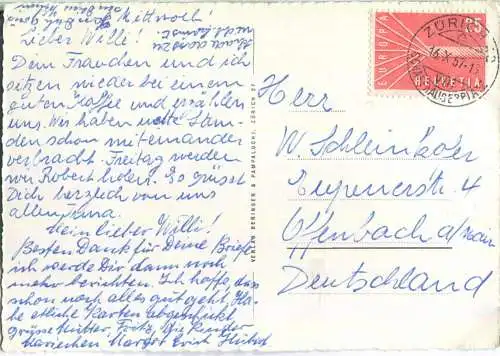 Mittwoch!
Lieber Willi!
Dein Frauchen und ich
sitzen wieder bei einem
guten Kaffee und erzählen
uns. Wir haben nette Stun-
den schon miteinander
verbracht. Freitag werden
wir Robert holen. Es grüsst
Dich herzlich von uns
allen
Mein lieber Willi!
Besten Dank für Deine Briefe
ich werde Dir dann noch
mehr berichten. Ich hoffe, dass
schon noch alles gut geht. Ha-
be etliche Karten abgeschickt
grüsse Mutter, Fritz, die Kinder
Margot Erich
VERLAG BERINGER & PAMPALUCHI, ZÜRICH
EUROPA
25
HELVETIA
ZÜRICH
16.X.57
Herr
W. Schleinkofer
4
Offenbach a/Main
Deutschland